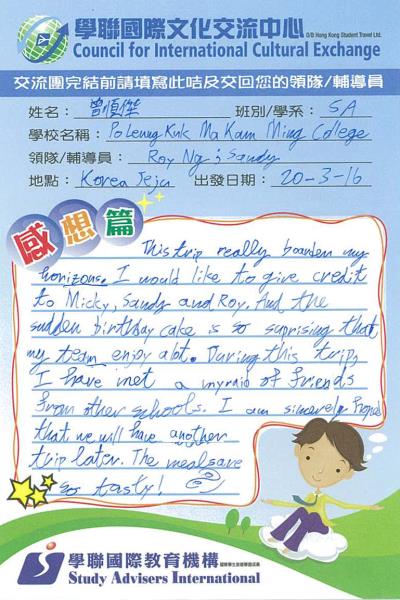 學聯國際文化交流中心
O/B Hong Kong Student Travel Ltd.
Council for International Cultural Exchange
交流團完結前請填寫此咭及交回您的領隊/輔導員
姓名: 曾順傑 班別/學系: 5A
學校名稱: Po Leung Kuk Ma Kam Ming College
領隊/輔導員: Roy Ng ; Sandy
地點: Korea Jeju 出發日期: 20-3-16
感想篇
This trip really boarden my
horizons. I would like to give credit
to Micky, Sandy and Roy. And the
sudden birthday cake is so suprising that
my team enjoy alot. During this trip,
I have met a myraid of friends
from other schools. I am sincerely
that we will have another
trip later. The meals are
so tasty!
學聯國際教育機構
Study Advisers International